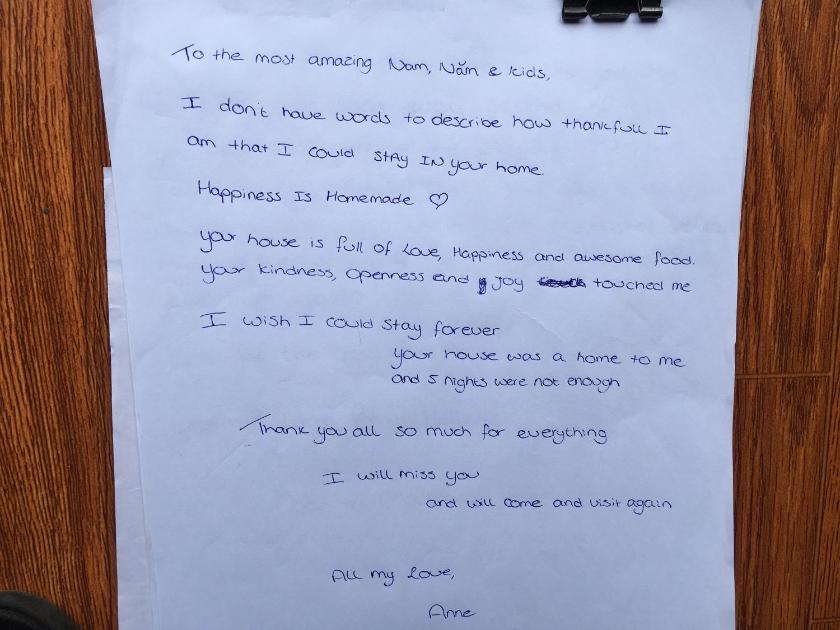 To the most amazing Nam, Năm & kids,
I don't have words to describe how thankfull I
am that I could stay IN your home.
Happiness Is Homemade ♡
your house is full of Love, Happiness and awesome food.
your kindness, openness and joy touched me
I wish I could stay forever
your house was a home to me
and 5 nights were not enough
Thank you all so much for everything
I will miss you
and will come and visit again
All my Love,
Anne